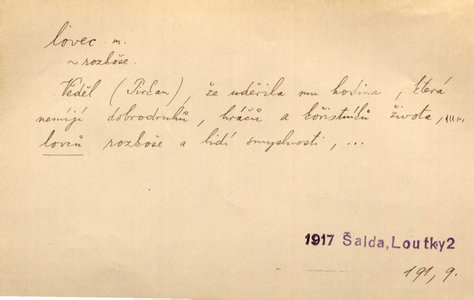 lovec m.
~ rozkoše.
Věděl (Pičan), že udeřila mu hodina, která
nemíjí dobrodruhů, hráčů a kořistníků života,
lovců rozkoše a lidí smyslnosti, ...
1917 Šalda, Loutky2
191, 9.